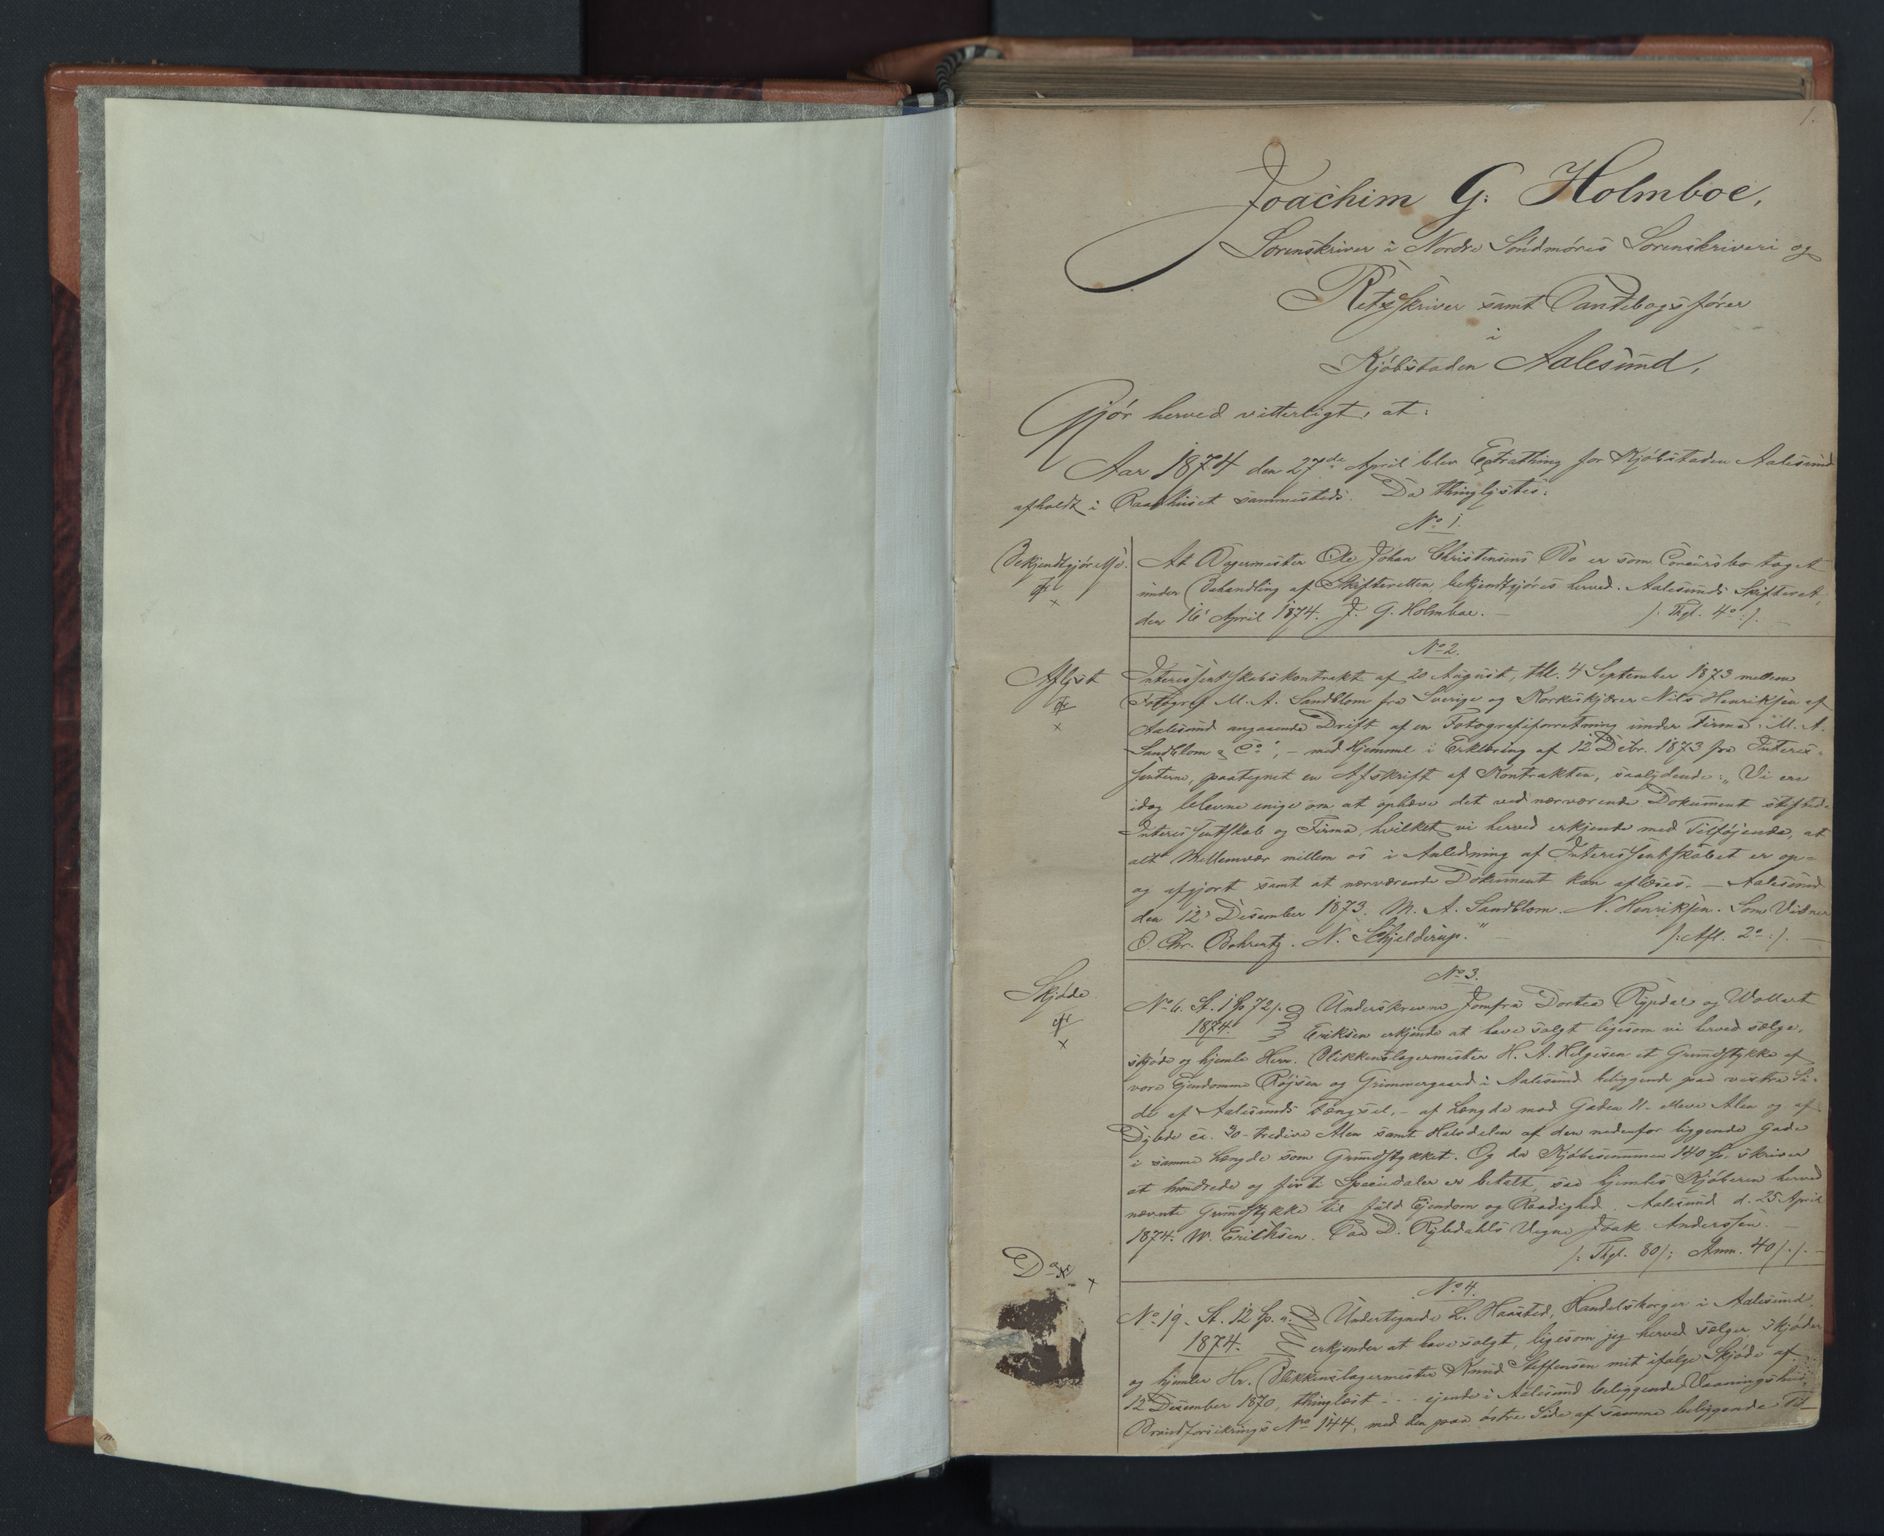 1.
Joachim G. Holmboe,
Sorenskriver i Nordre Søndmøres Sorenskriveri og
Retsskriver samt Pantebogsfører
i
Kjøbstaden Aalesund,
Gjør herved vitterligt, at:
Aar 1874 den 27de April blev Extrathing for Kjøbstaden Aalesund
afholdt i Raadhuset sammesteds. Da thinglystes:
No 1.
Bekjendtgjørelse.
At Bagermester Ole Johan Christensens Bo er som Concursbo taget
under Behandling af Skifteretten bekjendtgjøres herved. Aalesunds Skifteret,
den 16' April 1874. J. G. Holmboe. — /: Thgl. 4o :/. —
No 2.
Aflyst
Interessentskabskontrakt af 20 August, thl. 4 September 1873 mellem
Fotograf M. A. Sandblom fra Sverige og Korkeskjærer Nils Henriksen af
Aalesund angaaende Drift af en Fotografiforretning under Firma: "M. A.
Sandblom & Co", – med Hjemmel i Erklæring af 12 Debr. 1873 fra Interes-
senterne, paategnet en Afskrift af Kontrakten, saalydende: „Vi ere
idag blevne enige om at ophæve det ved nærværende Dokument stiftede
Interessentskab og Firma, hvilket vi herved erkjende med Tilføjende, at
alt Mellemvær mellem os i Anledning af Interessentskabet er op-
og afgjort samt at nærværende Dokument kan aflæses. — Aalesund
den 12' Desember 1873. M. A. Sandblom. N. Henriksen. Som Vidner
O. Chr. Bohrentz. N. Schjelderup." — /: Afl. 2o :/. —
No 3.
Skjøde
No 6. St. 1 Sp 72 /. Underskrevne Jomfru Dortea Rypdal og Wollert
1874. Eriksen erkjende at have solgt ligesom vi herved sælge,
skjøde og hjemle Herr. Blikkenslagermester H. A. Helgesen et Grundstykke af
vore Ejendomme Røjsen og Grimmergaard i Aalesund beliggende paa vestre Si-
de af Aalesunds Fængsel, – af Længde mod Gaden 11 – elleve Alen og af
Dybde ca. 30 – tredive Alen samt Halvdelen af den nedenfor liggende Gade
i samme Længde som Grundstykket. Og da Kjøbesummen 140 Sp. skriver
et hundrede og førti Speciedaler er betalt, saa hjemles Kjøberen herved
nævnte Grundstykke til fuld Ejendom og Raadighed. Aalesund d. 25 April
1874. W. Eriksen. Paa D. Rypdahls Vegne Isak Anderssen. —
/: Thgl. 80 /; Anm. 40 /./. —
Do
No 4.
No 19. St. 12 Sp. Undertegnede L. Haasted, Handelsborger i Aalesund,
1874. erkjender at have solgt, ligesom jeg herved sælger, skjøder
og hjemler Hr. Blikkenslagermester Knud Steffensen mit ifølge Skjøde af
12 Desember 1870, thinglæst - - - ejende i Aalesund beliggende Vaaningshus,
Brandforsikrings No 144, med den paa østre Side af samme beliggende Til-